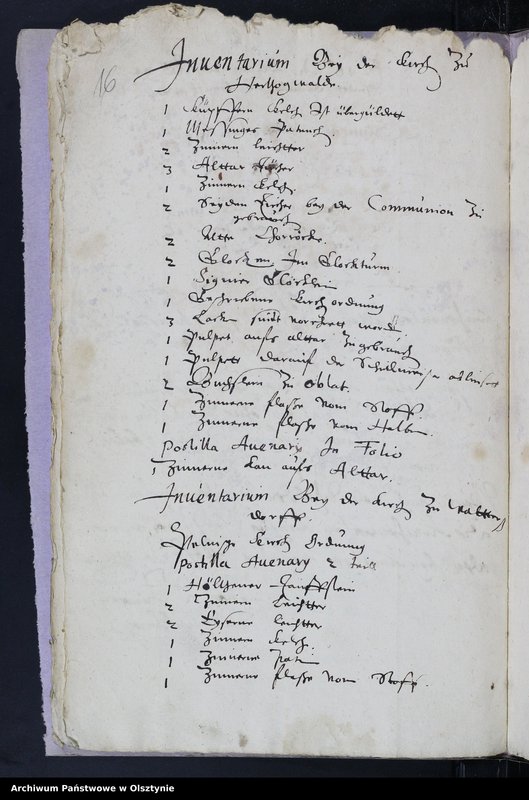 16
Inuentarium Bey der Kirch Zu
Hertzogwalde.
1 Küpffern Kelch Ist übergüldett
1 Messinges Patench.
2 Zinnern leichtter
3 Alttar Tücher
1 Zinnern Kelch.
2 Seyden Tücher bey der Communion Zu
gebrauch
2 Alte Chorröcke.
2 Glocken Im Glocktürm.
1 Signier Glöcklein
1 Geschriebene Kirchordnung
3 Laden
1 Pulpet aufs alttar Zugebrauch
1 Pulpett darauf der Schulmeister
2 Buchslein Zu Oblat.
1 Zinnerne flasche vom Stoff
1 Zinnerne flasche vom Halben.
Postilla Auenary In Folio
1 Zinnerne Kan aufs Alttar.
Inuentarium Bey der Kirch Zu Waltters
dorff.
Kirch Ordnung
Postilla Auenary 2 teill
1 Höltzener Tauffstein
2 Zinnern Leichtter
2 Eyserne leichtter
1 Zinnern Kelch.
1 Zinnerne Paten
1 Zinnerne flasche vom Stoff.
Archiwum Państwowe w Olsztynie